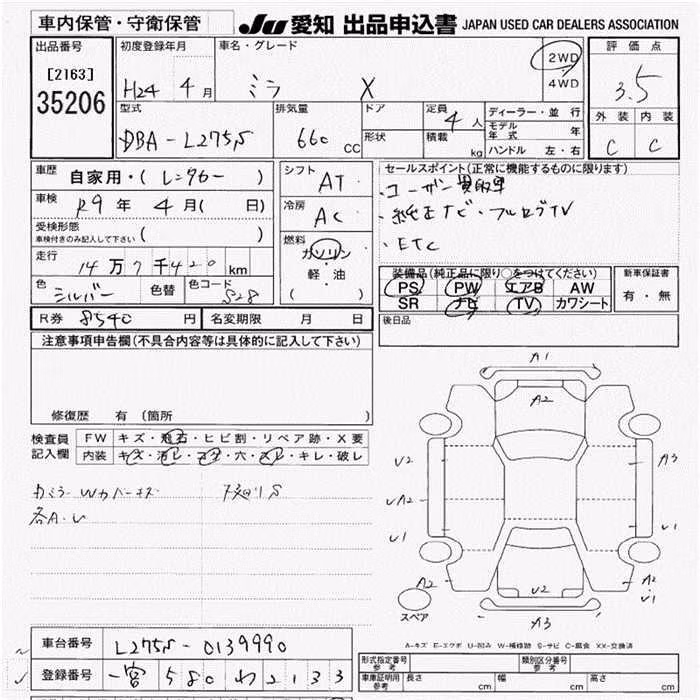 車内保管・守衛保管
JU 愛知 出品申込書 JAPAN USED CAR DEALERS ASSOCIATION
出品番号 初度登録年月 車名・グレード 2WD 4WD 評価点
[2163]
35206
H24 4月 ミラ X 3.5
型式 排気量 ドア 定員 4人 ディーラー・並行
DBA-L275S 660 CC 形状 積載 kg モデル年式 年
ハンドル 左・右
外装 内装
C C
車歴 自家用・(レンタカー)
車検 R9年 4月( 日)
受検形態 車検付きのみ記入して下さい ( )
走行 14万7千420km
色 シルバー 色替 色コード S28
シフト AT
冷房 AC
燃料 ガソリン 軽油 ( )
セールスポイント(正常に機能するものに限ります)
・ユーザー買取車
・純正ナビ・フルセグTV
・ETC
装備品(純正品に限り○をつけてください) 新車保証書
PS PW エアB AW 有・無
SR ナビ TV カワシート
後日品
R券 8540円 名変期限 月 日
注意事項申告欄(不具合内容等は具体的に記入して下さい)
修復歴 有 (箇所
検査員記入欄 FW キズ・飛石・ヒビ割・リペア跡・X要
内装 キズ・汚レ・コゲ・穴・スレ・キレ・破レ
各A・U
A1
A2
U2 A3
UA2
U1 U1
A2 U2 A2 U1
スペア A3
A-キズ E-エクボ U-凹み W-補修跡 S-サビ C-腐食 XX-交換済
車台番号 L275S-0139990
登録番号 一宮 580 わ 2133
形式指定番号 参考 類別区分番号 参考
車庫証明用 参考 長さ cm 幅 cm 高さ cm